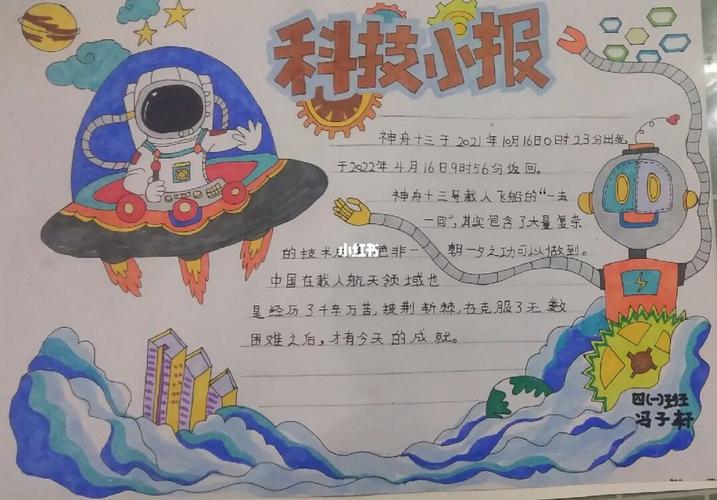 科技小报
神舟十三于2021年10月16日0时23分出发,
于2022年4月16日9时56分返回。
神舟十三号载人飞船的"一去
一回",其实包含了大量复杂
的技术 绝非一朝一夕之功可以做到。
小红书
中国在载人航天领域也
是经历了千辛万苦,披荆斩棘,在克服了无数
困难之后,才有今天的成就。
四(一)班
冯子轩